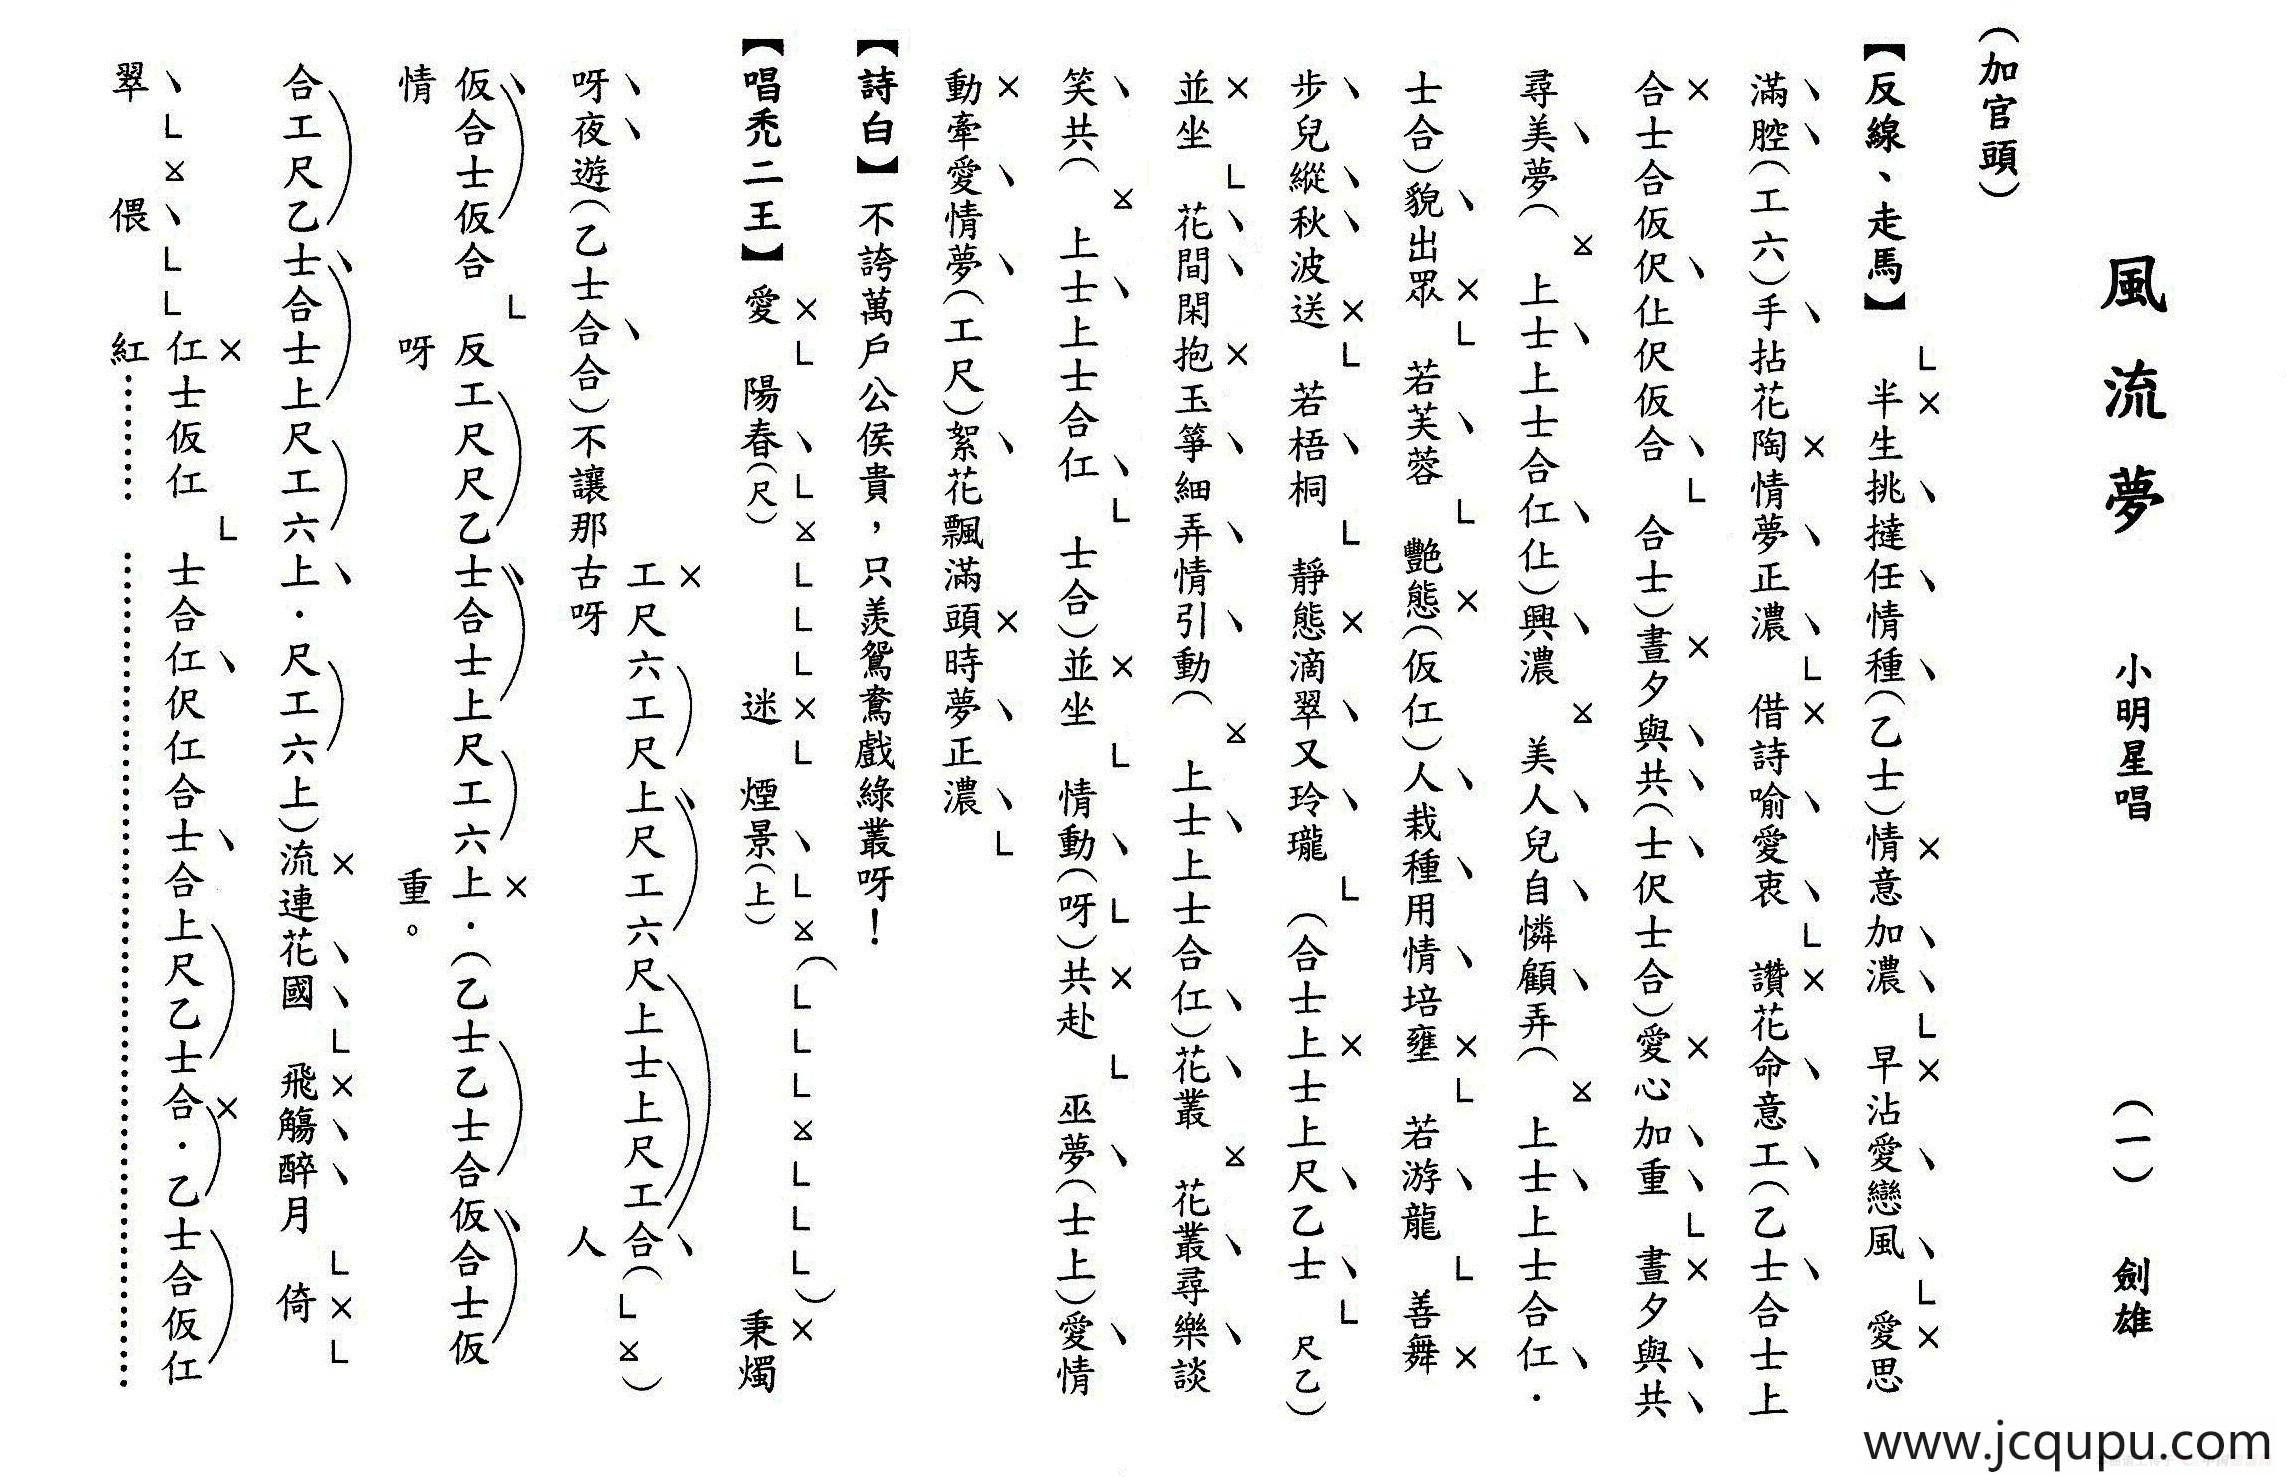 風流夢 小明星唱 (一) 劍雄
(加官頭)
【反線、走馬】 L 半×生挑、撻任、情種、(乙士)情×意加、濃、L 早×沾愛、戀風、L 愛×思
滿、腔、(工六)手、拈花陶×情夢、正濃、L 借×詩喻、愛衷、L 讚×花命、意工、(乙士、合士上
合×士合仮伬、仩伬仮合、L 合士)晝×夕與、共、(士、伬士合)愛×心加、重、L 晝×夕與、共、
尋美、夢(上士、上士合仜、仩)興、濃 美人、兒自、憐顧、弄(上士、上士合仜、.
士合)貌、出眾× L 若芙、蓉 L 艷態×(仮仜)人、栽種、用情、培壅× L 若游、龍 L 善舞×
步、兒縱、秋、波送× L 若梧、桐 L 靜態×滴翠、又玲、瓏 L (合士上×士上尺、乙士、L 尺乙)
並×坐 L 花、間、閑抱×玉箏、細弄、情引、動(上士、上士合仜、)花、叢 花叢、尋樂、談
笑、共(上士、上士合仜、L 士合)並×坐 L 情動、(呀)L 共×赴 L 巫夢、(士上)愛、情
動×牽愛、情夢、(工尺)絮、花飄滿頭×時夢、正濃、L
【詩白】不誇萬戶公侯貴，只羨鴛鴦戲綠叢呀！
【唱禿二王】愛× L 陽春、(尺) L L L L 迷× L 煙景、(上) L (L L L L L L) 秉×燭
呀、夜、遊(乙士合、合)不讓那古呀 人
工×尺六工尺上、尺工六尺上士上尺工合、(L)
仮、合士仮合 L 反工尺尺乙士、合士上尺工六上×.(乙士乙士合仮、合士仮
情 呀 重。
合工尺乙士、合士上尺工六上、.尺工六上)流×連花、國、L 飛×觴、醉、月 L 倚× L
、L 、L L 仜×士仮仜 L 士合仜、伬仜合士、合上尺乙士合×.乙士合仮仜
翠 偎 紅……
www.jcqupu.com